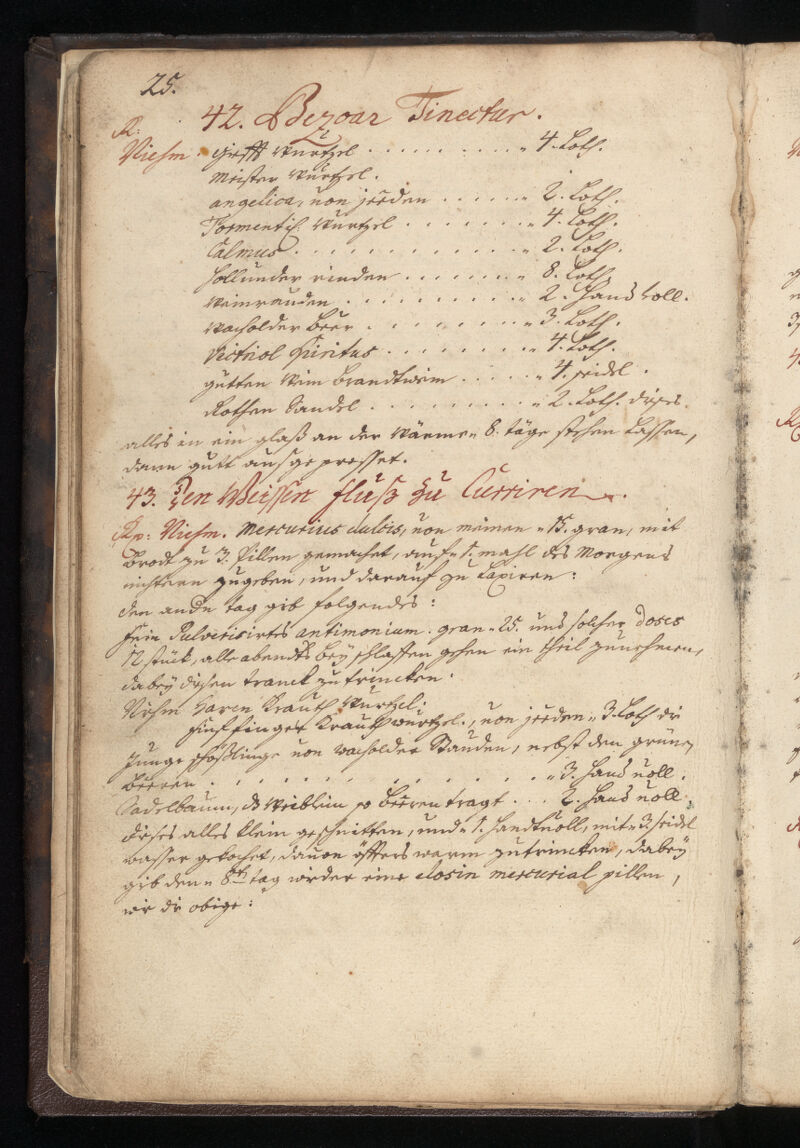 25.
42. Bezoar Tinectur.
R:
Niehm. Gifft Wurtzel . . . . . . . . . „ 4. Loth.
Meister Wurtzel.
angelica, von jeeden . . . . . „ 2. Loth.
Tormentil. Wurtzel . . . . . . . „ 4. Loth.
Calmus . . . . . . . . . . . „ 2. Loth.
Hollunder rinden . . . . . . . „ 8. Loth.
Weinrauden . . . . . . . . . „ 2. Hand voll.
Wacholder Beer . . . . . . . . „ 3. Loth.
Victriol Spiritus . . . . . . . . „ 4. Loth.
gutten Wein Brandtwein . . . . . „ 4. seidel.
Rothen Sandel . . . . . . . . . „ 2. Loth. dises
alles in ein glaß an der Wärme „ 8. täge stehen Lassen,
dann gutt ausgepresset.
43. Den Weissen fluß zu Curriren.
Rp: Niehm. Mercurius dulcis, von meinen „ 15. gran, mit
Brodt zu 3. Pillen gemachet, auf „ 1. mahl des Morgens
nichtern zugeben, und darauf zu Laxiren:
den andn tag gib folgendes:
fein Pulverisirtes antimonium. gran „ 25. und solcher Doses
12 stück, alle abendts bey schlaffen gehen ein theil zunehmen,
dabey disen tranck zutrincken.
Niehm Haren Krauth Wurtzel:
fünffinger Krauth wurtzel., von jeeden „ 3. Loth die
Junge schößlinge von wacholder Stauden, nebst den grünen
Beeren . . . . . . . . . . . . . . . „ 3. Hand voll.
Sadelbaum, ds Weiblein so Beeren tragt . . . 2. Hand voll.
dises alles klein geschnitten, und „ 1. Handtvoll, mit „ 3. seidel
wasser gekochet, dauon öffters warm zutrincken, dabey
gib den „ 8ten tag wider eine dosin mercurial pillen,
wie die obige: